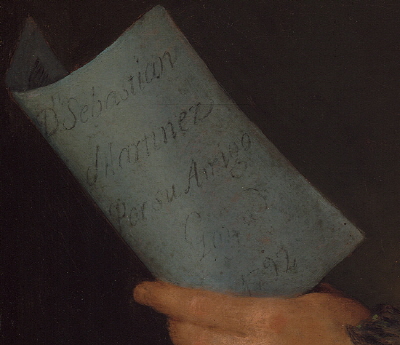 Dn Sebastian
Martinez
Por su Amigo
Goya
1792